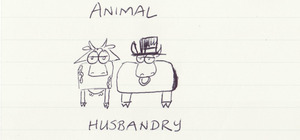 ANIMAL
HUSBANDRY